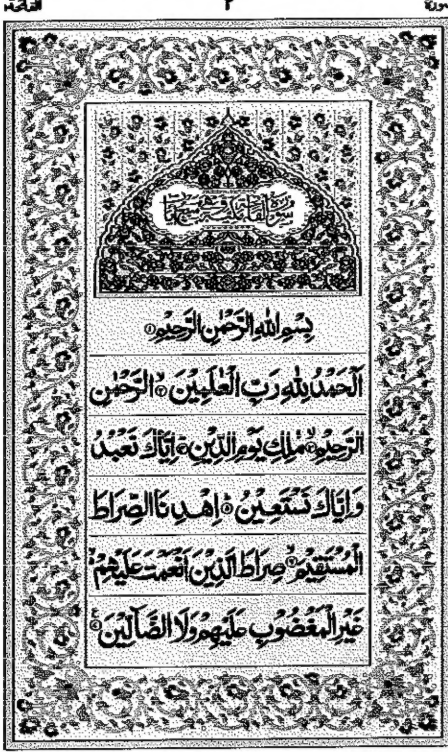 سورة ٢ الفاتحة
سورة الفاتحة مكية وهي سبع آيات
بِسْمِ اللهِ الرَّحْمٰنِ الرَّحِيْمِ ۝١
اَلْحَمْدُ لِلّٰهِ رَبِّ الْعٰلَمِيْنَ ۝٢ۙ الرَّحْمٰنِ
الرَّحِيْمِ ۝٣ۙ مٰلِكِ يَوْمِ الدِّيْنِ ۝٤ؕ اِيَّاكَ نَعْبُدُ
وَاِيَّاكَ نَسْتَعِيْنُ ۝٥ؕ اِهْدِنَا الصِّرَاطَ
الْمُسْتَقِيْمَ ۝٦ۙ صِرَاطَ الَّذِيْنَ اَنْعَمْتَ عَلَيْهِمْ ۙ
غَيْرِ الْمَغْضُوْبِ عَلَيْهِمْ وَلَا الضَّآلِّيْنَ ۝٧